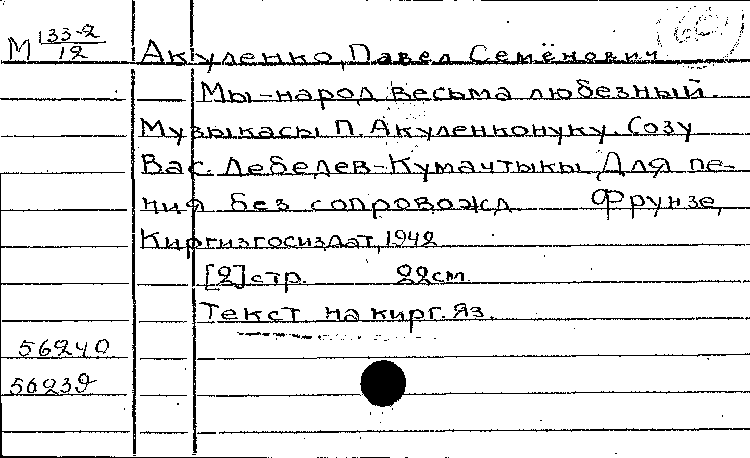 М 133-2/12
Акуленко, Павел Семёнович
Мы-народ весьма любезный.
Музыкасы П. Акуленконуку. Созу
Вас. Лебедев-Кумачтыкы Для пе-
ния без сопровожд Фрунзе,
Киргизгосиздат, 1942
[2] стр. 22см
Текст на кирг. яз.
56240
56239